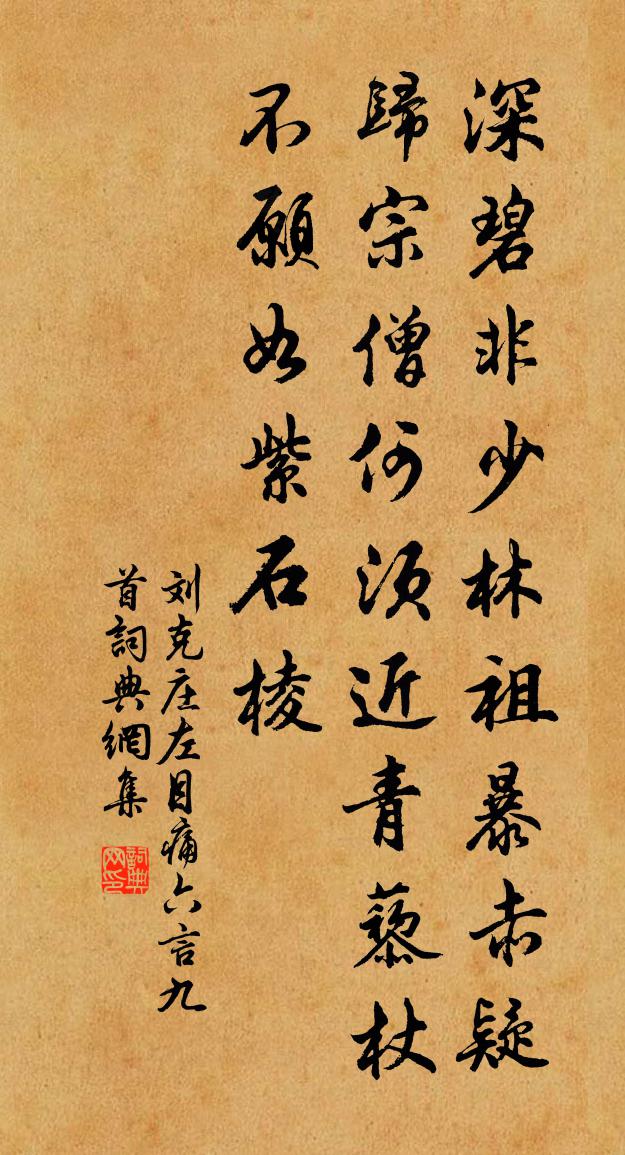 深碧非少林祖暴赤疑
歸宗僧何須近青藜杖
不願如紫石棱
刘克庄左目痛六言九
首詞典網集
詞典网印